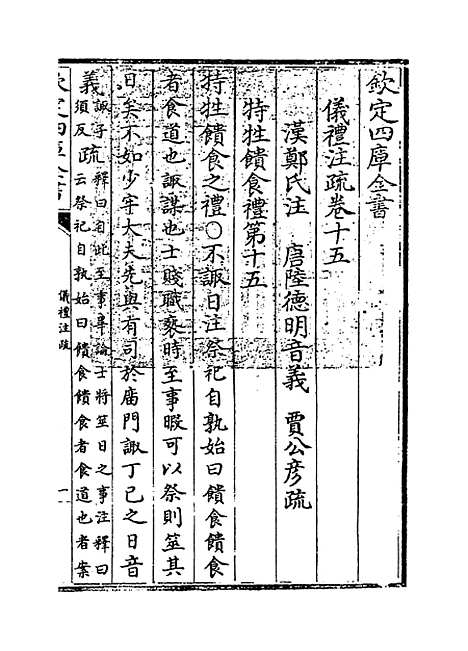 欽定四庫全書
儀禮注疏卷十五
漢鄭氏注 唐陸德明音義 賈公彥疏
特牲饋食禮第十五
特牲饋食之禮○不諏日注祭祀自孰始曰饋食饋食
者食道也諏謀也士賤職褻時至事暇可以祭則筮其
日矣不如少牢大夫先與有司於廟門諏丁已之日音
義諏子須反疏釋曰自此至事畢論士將筮日之事注釋曰
云祭祀自孰始曰饋食饋食者食道也者案
欽定四庫全書
儀禮注疏
一